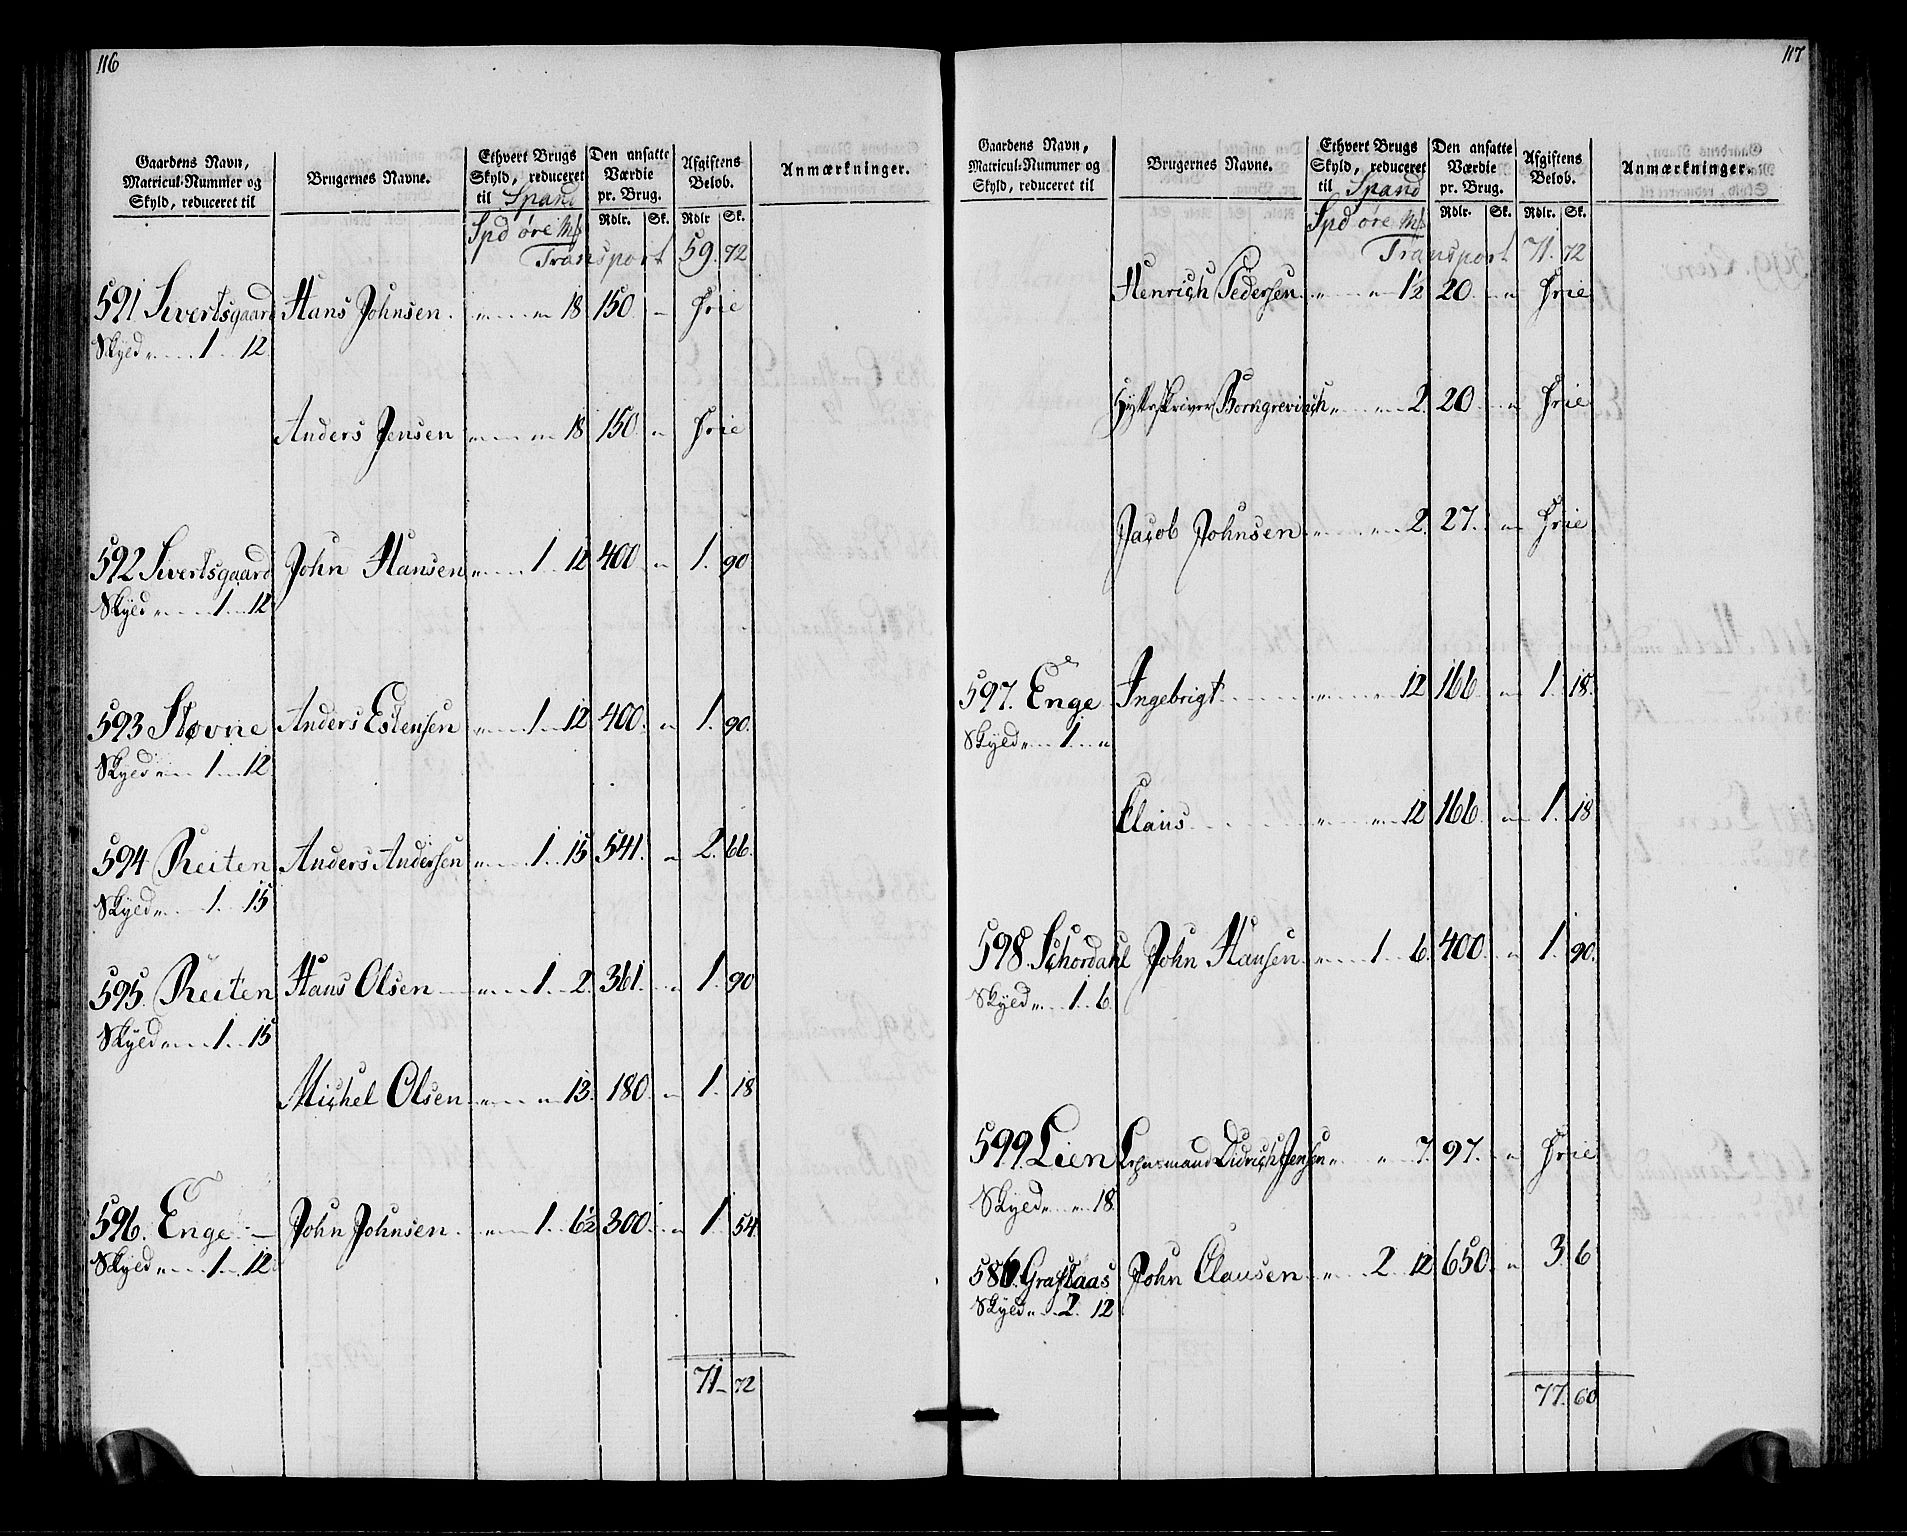 116
Gaardens Navn, Matricul-Nummer og Skyld, reduceret til
Brugernes Navne.
Ethvert Brugs Skyld, reduceret til Spand
Den ansatte Værdie pr. Brug.
Afgiftens Beløb.
Anmærkninger.
Spd øre Mk
Rdlr. Sk. Rdlr Sk.
Transport 59. 72
591 Sivertsgaard Hans Johnsen. " " 18 150 " Frie
Skyld " 1 12
Anders Jensen " " 18 150 " Frie
592 Sivertsgaard John Hansen " 1 12 400 " 1. 90
Skyld " 1 12
593 Støvne Anders Estensen " 1 12 400 " 1. 90.
Skyld " 1 12
594 Reiten Anders Andersen " 1 15 541. " 2. 66.
Skyld " 1 15
595. Reiten Hans Olsen " 1 2. 361. " 1. 90
Skyld " 1 15
Michel Olsen " " 13. 180. " 1. 18
596. Enge John Johnsen " 1 6½ 300 " 1 54
Skyld " 1 12
71 72
117
Gaardens Navn, Matricul-Nummer og Skyld, reduceret til
Brugernes Navne.
Ethvert Brugs Skyld, reduceret til Spand
Den ansatte Værdie pr. Brug.
Afgiftens Beløb.
Anmærkninger.
Spd øre Mk
Rdlr. Sk. Rdlr. Sk.
Transport 71. 72
Henrich Pedersen " " 1½ 20 " Frie
Hytteskriver Borchgrevinch " " 2. 20 " Frie
Jacob Johnsen " " 2. 27. " Frie
597. Enge Ingebrigt " " 12 166 " 1. 18.
Skyld " 1 "
Claus " " 12 166 " 1. 18
598 Schordahl John Hansen " 1 6. 400 " 1. 90.
Skyld " 1 6
599 Lien Lehnsmand Didrich Jensen " " 7. 97. " Frie
Skyld " " 18
586. Graftaas John Clausen " 2 12 650. " 3 6
Skyld " 2 12
77. 60